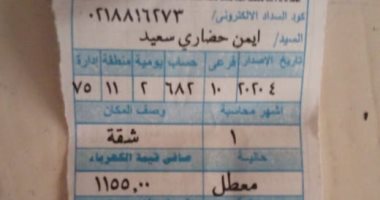 كود السداد الالكترونى/ ٠٢١٨٨١٦٢٧٣
السيد/ ايمن حضاري سعيد
تاريخ الاصدار فرعى حساب يومية منطقة إدارة
٢٠٢٠٤ ١٠ ٦٨٢ ٢ ١١ ٧٥
اشهر محاسبة وصف المكان
١ شقة
حالية صافى قيمة الكهرباء
معطل ١١٥٥,٠٠